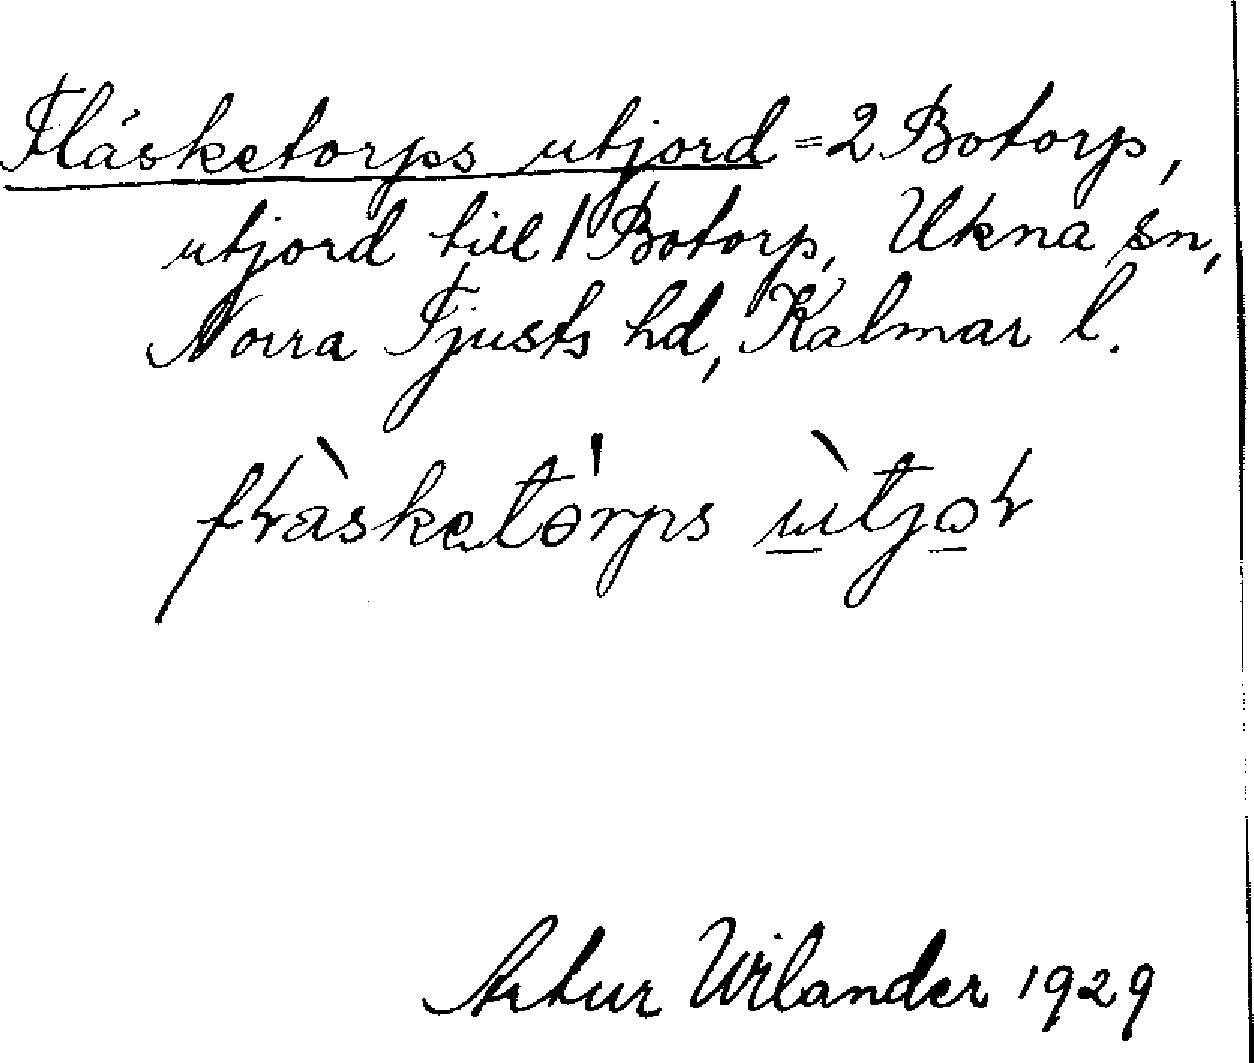 Fläsketorps utjord = 2 Botorp,
utjord till 1 Botorp, Ukna sn,
Norra Tjusts hd, Kalmar l.
Artur Wilander 1929